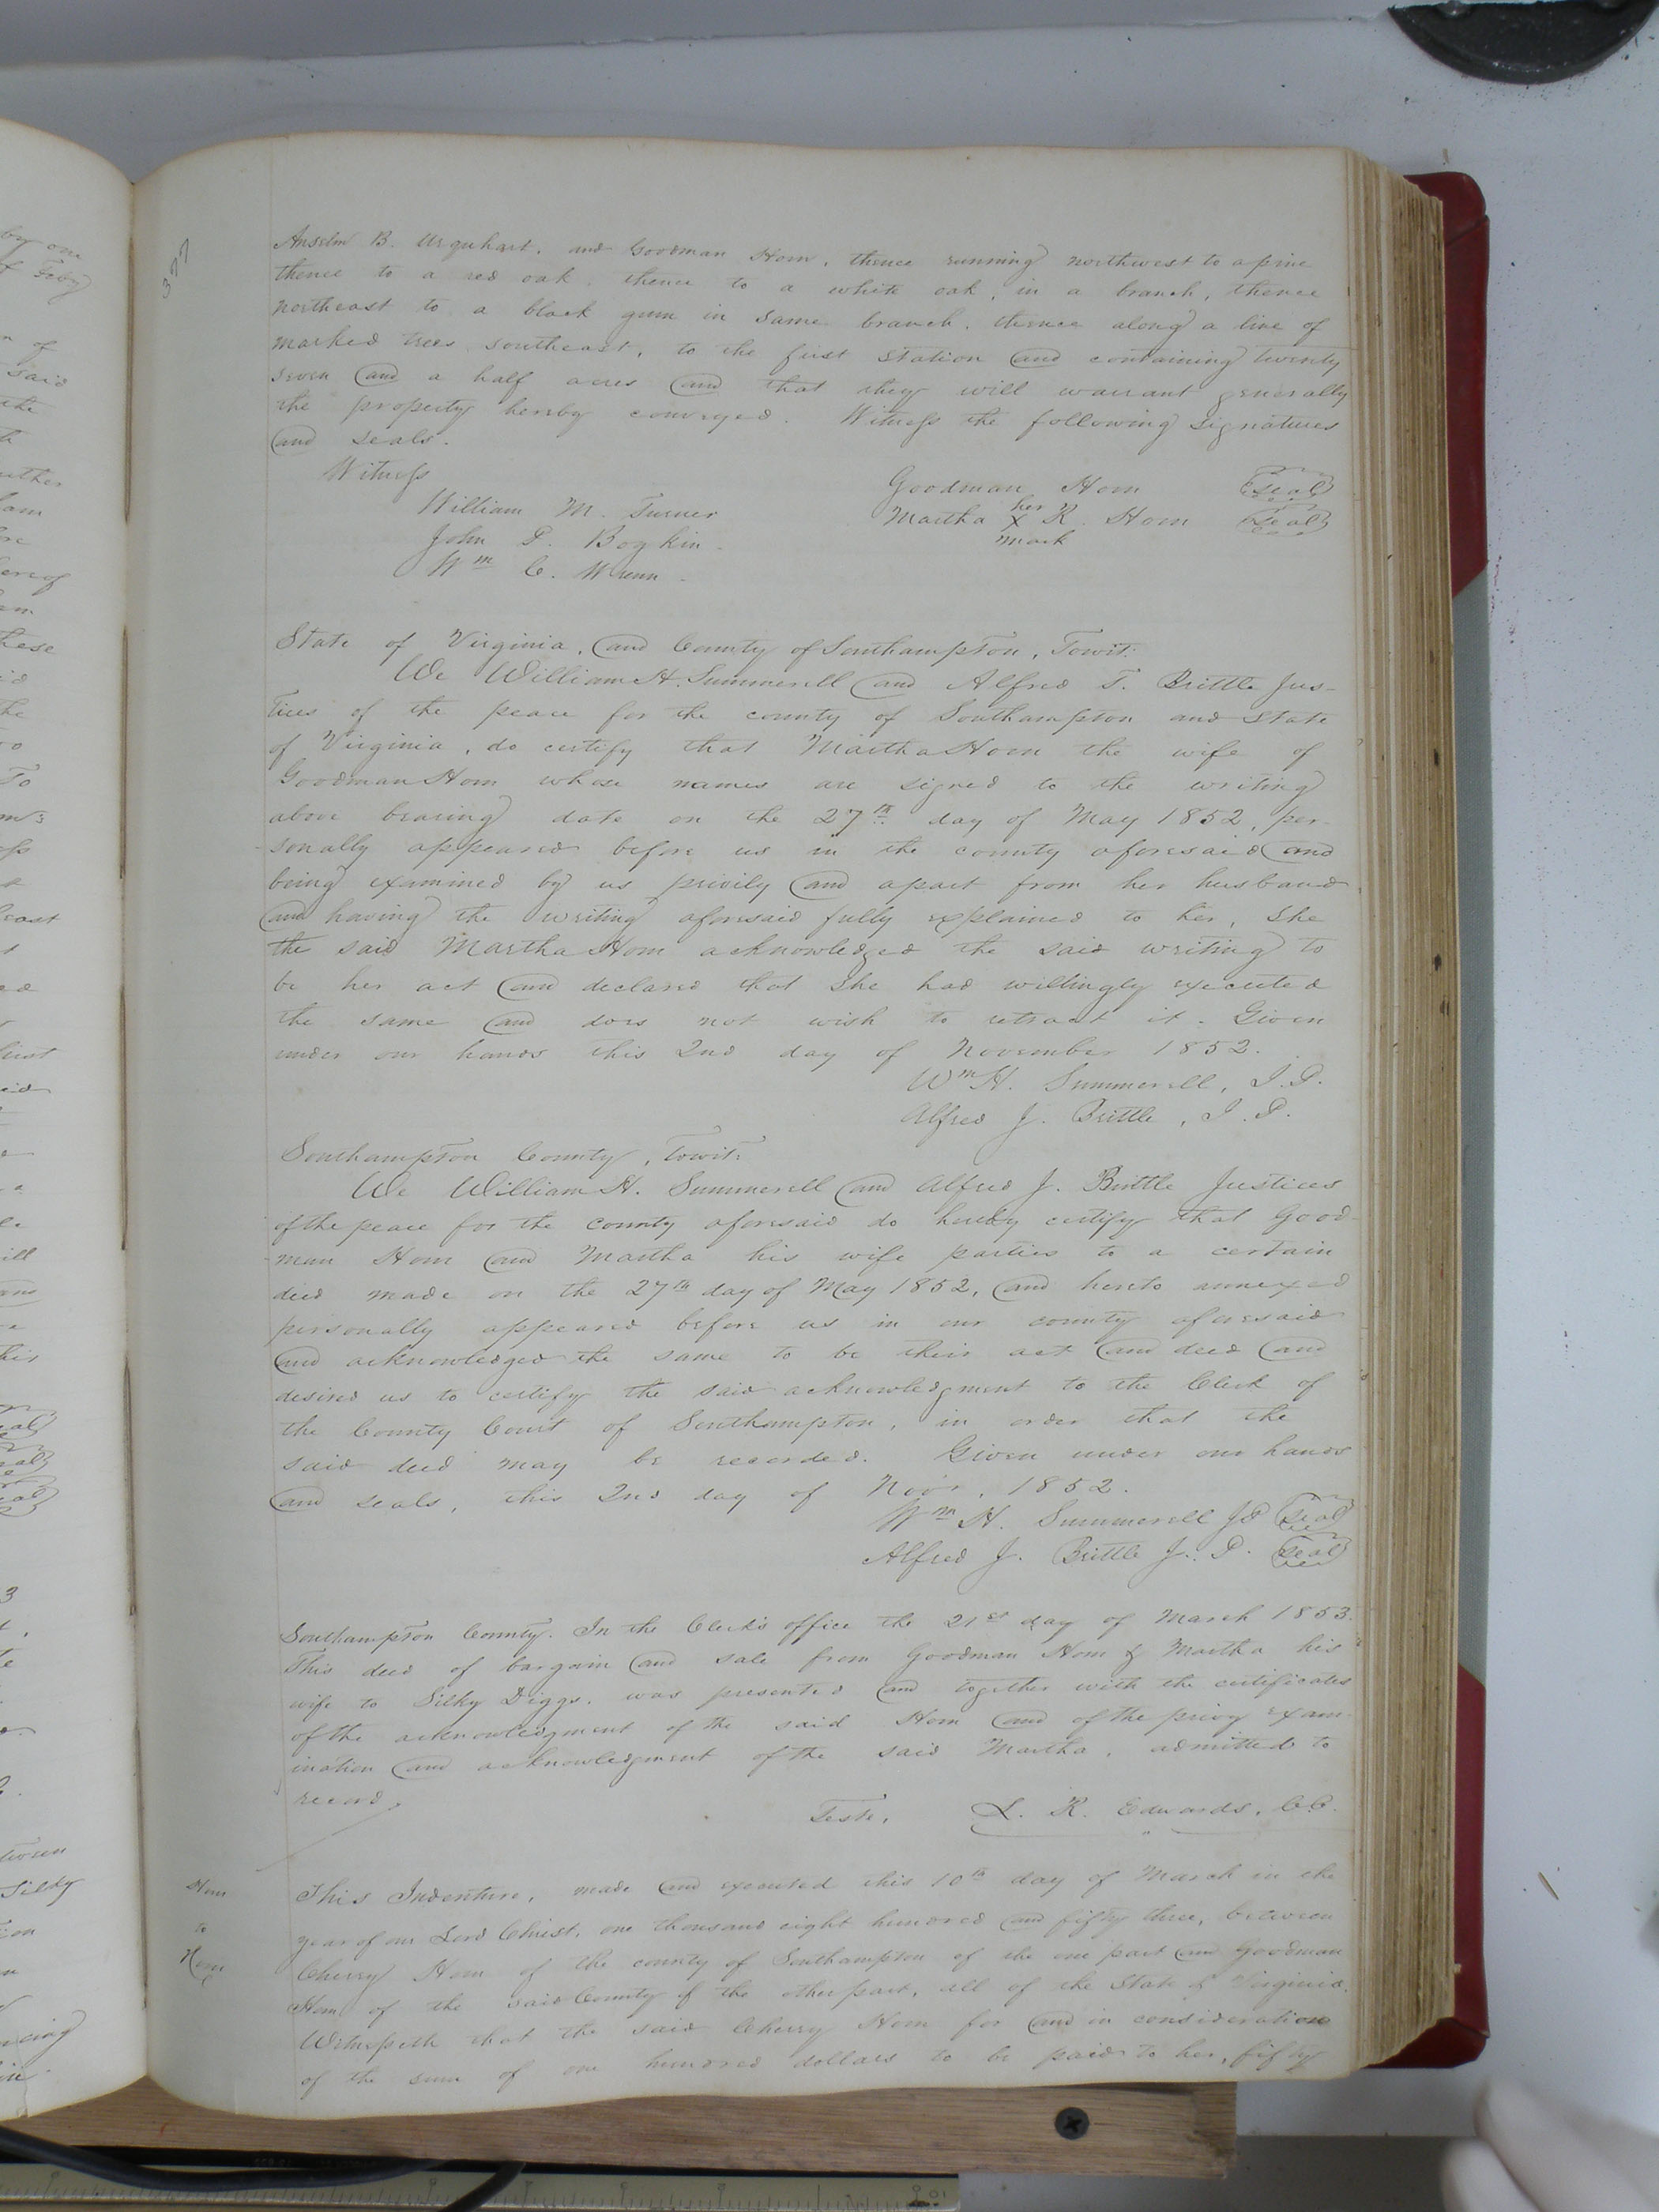 377
Anselm B. Urquhart, and Goodman Horn, thence running northwest to a pine
thence to a red oak, thence to a white oak, in a branch, thence
northeast to a black gum in same branch, thence along a line of
marked trees southeast, to the first station and containing twenty
seven and a half acres and that they will warrant generally
the property hereby conveyed. Witness the following signatures
and seals.
Witness
Goodman Horn Seal
William M. Turner
her
Martha X R. Horn Seal
mark
John P. Boykin
Wm C. Wrenn
State of Virginia, and County of Southampton, Towit:
We William H. Summerell and Alfred T. Brittle Jus-
tices of the peace for the county of Southampton and State
of Virginia, do certify that Martha Horn the wife of
Goodman Horn whose names are signed to the writing
above bearing date on the 27th day of May 1852, per-
sonally appeared before us in the county aforesaid and
being examined by us privily and apart from her husband
and having the writing aforesaid fully explained to her, she
the said Martha Horn acknowledged the said writing to
be her act and declared that she had willingly executed
the same and does not wish to retract it. Given
under our hands this 2nd day of November 1852.
Wm H. Summerell, J.P.
Alfred J. Brittle, J.P.
Southampton County, Towit:
We William H. Summerell and Alfred J. Brittle Justices
of the peace for the county aforesaid do hereby certify that Good-
man Horn and Martha his wife parties to a certain
deed made on the 27th day of May 1852, and hereto annexed
personally appeared before us in our county aforesaid
and acknowledged the same to be their act and deed and
desired us to certify the said acknowledgment to the Clerk of
the County Court of Southampton, in order that the
said deed may be recorded. Given under our hands
and seals, this 2nd day of Nov'r, 1852.
Wm H. Summerell JP Seal
Alfred J. Brittle J.P. Seal
Southampton County. In the Clerk's office the 21st day of March 1853.
This deed of bargain and sale from Goodman Horn & Martha his
wife to Silky Diggs, was presented and together with the certificates
of the acknowledgment of the said Horn and of the privy exam-
ination and acknowledgment of the said Martha, admitted to
record.
Teste, L. R. Edwards, C.C.
Horn
to
Horn
This Indenture, made and executed this 10th day of March in the
year of our Lord Christ, one thousand eight hundred and fifty three, between
Cherry Horn of the county of Southampton of the one part and Goodman
Horn of the said County of the other part, all of the State of Virginia.
Witnesseth that the said Cherry Horn for and in consideration
of the sum of one hundred dollars to be paid to her, fifty